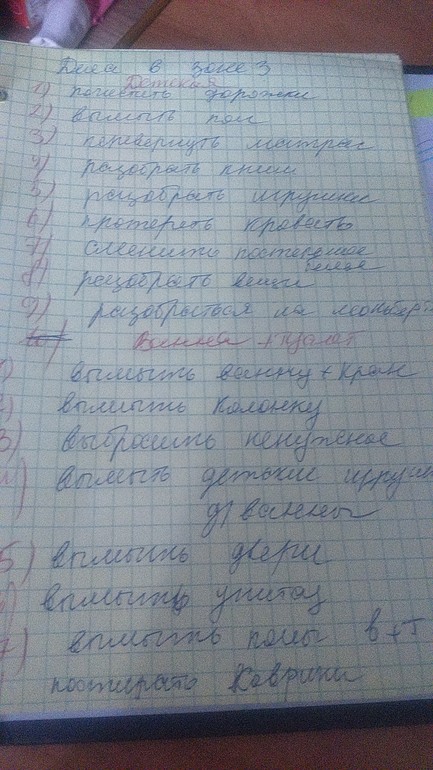 Дела в зоне 3
Детская
1) почистить дорожки
2) вымыть пол
3) перевернуть матрас
4) разобрать книги
5) разобрать игрушки
6) протереть кровать
7) сменить постельное
белье
8) разобрать вещи
9) разобраться на мольберте
Ванна + туалет
1) вымыть ванну + кран
2) вымыть колонку
3) выбросить ненужное
4) вымыть детские игруш
д/ ванны
5) вымыть двери
6) вымыть унитаз
7) вымыть полы в + т
постирать коврики